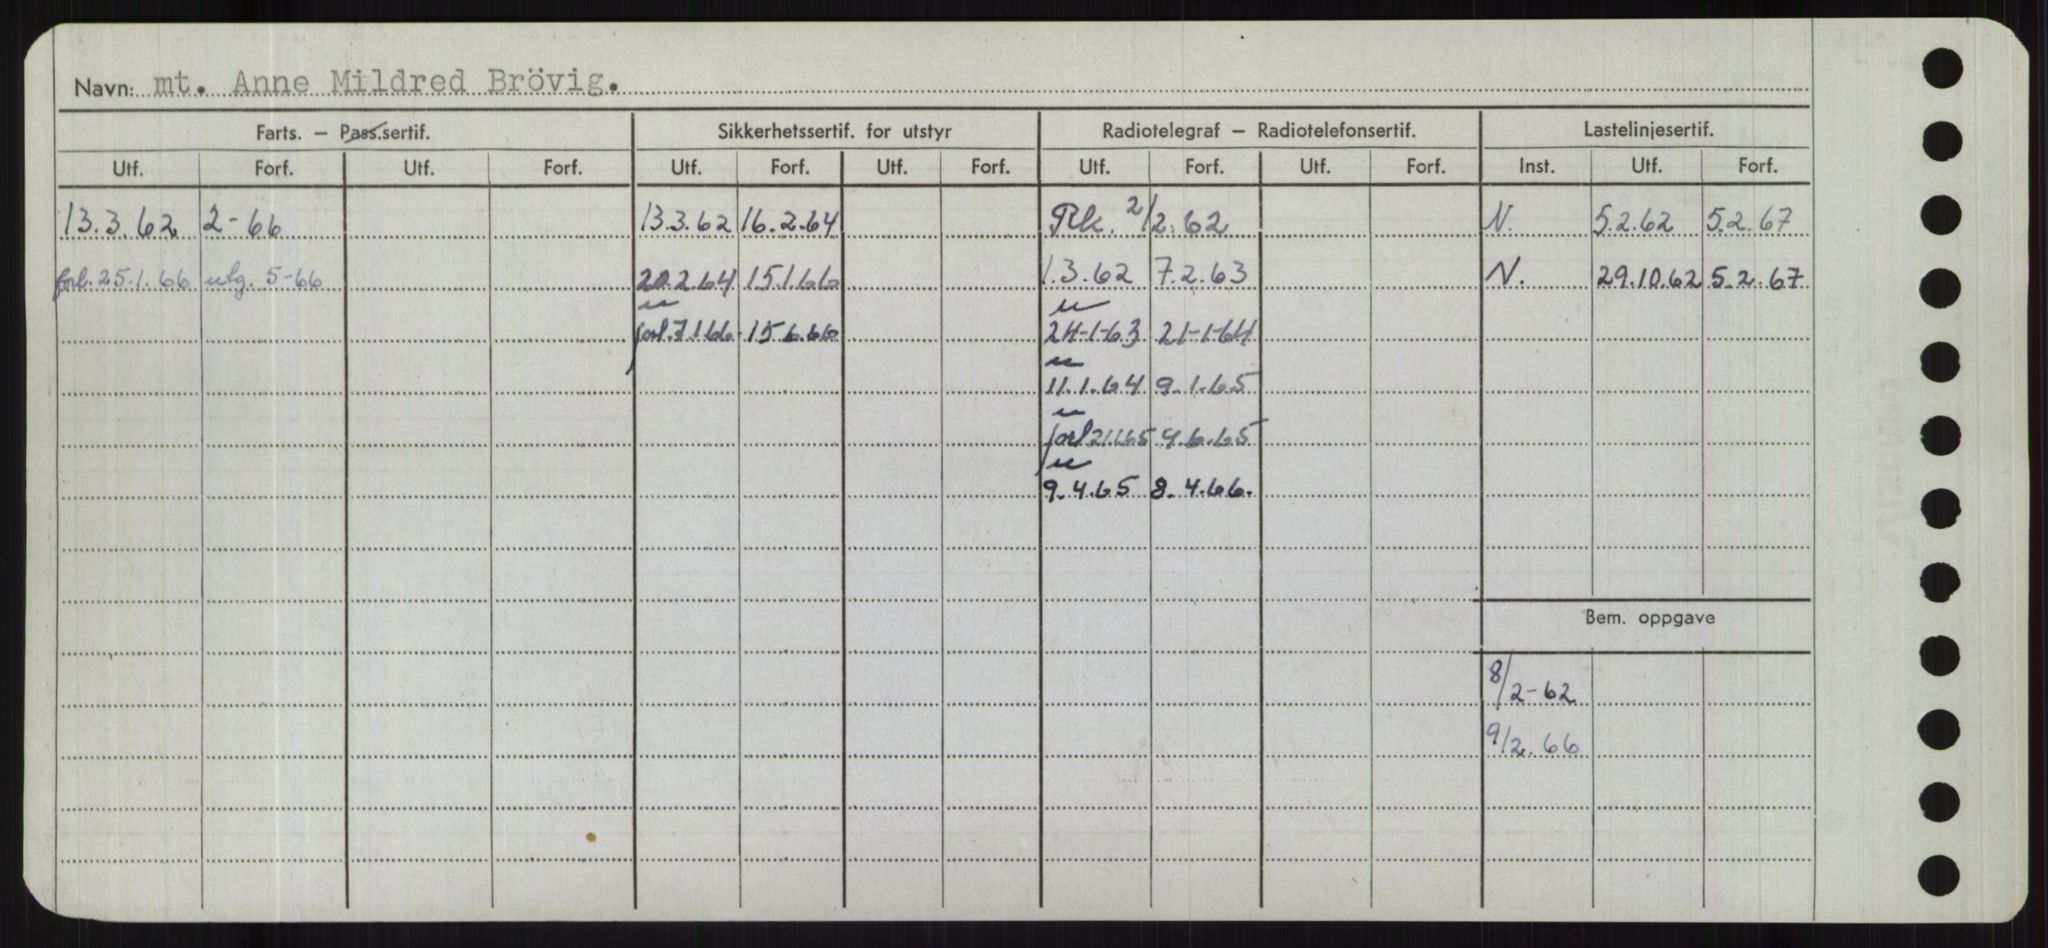 Navn: mt. Anne Mildred Brövig.
Farts. — Pass.sertif. Sikkerhetssertif. for utstyr Radiotelegraf — Radiotelefonsertif. Lastelinjesertif.
Utf. Forf. Utf. Forf. Utf. Forf. Utf. Forf. Utf. Forf. Utf. Forf. Inst. Utf. Forf.
13.3.62 2-66 13.3.62 16.2.64 Rk. 2/2.62 N. 5.2.62 5.2.67
forl. 25.1.66 utg. 5-66 20.2.64 15.1.66 1.3.62 7.2.63 N. 29.10.62 5.2.67
forl. 7.1.66 15.6.66 24-1-63 21-1-64
11.1.64 9.1.65
forl 21.1.65 9.6.65
9.4.65 8.4.66.
Bem. oppgave
8/2-62
9/2.66